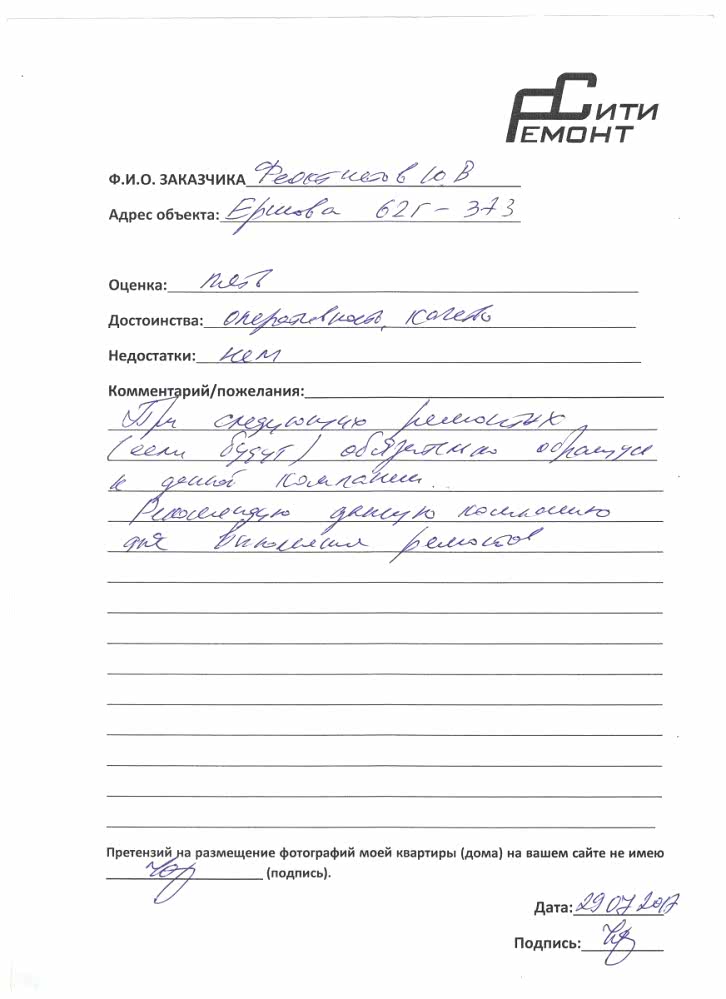 Сити
Ремонт
Ф.И.О. ЗАКАЗЧИКА Феоктистов Ю.В
Адрес объекта: Ершова 62г - 373
Оценка: пять
Достоинства: оперативность, качество
Недостатки: нет
Комментарий/пожелания:
При следующих ремонтах
(если будут) обязательно обращусь
к данной компании..
Рекомендую данную компанию
для выполнения ремонтов
Претензий на размещение фотографий моей квартиры (дома) на вашем сайте не имею
(подпись).
Дата: 29 07 2017
Подпись: